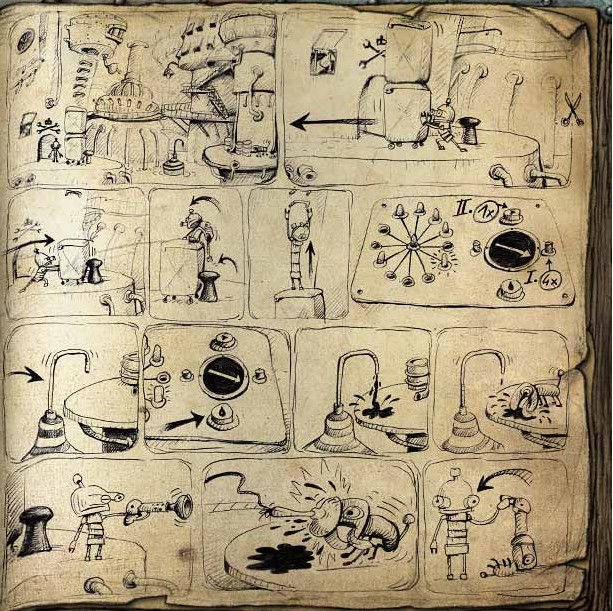 II. 1x
I. 4x